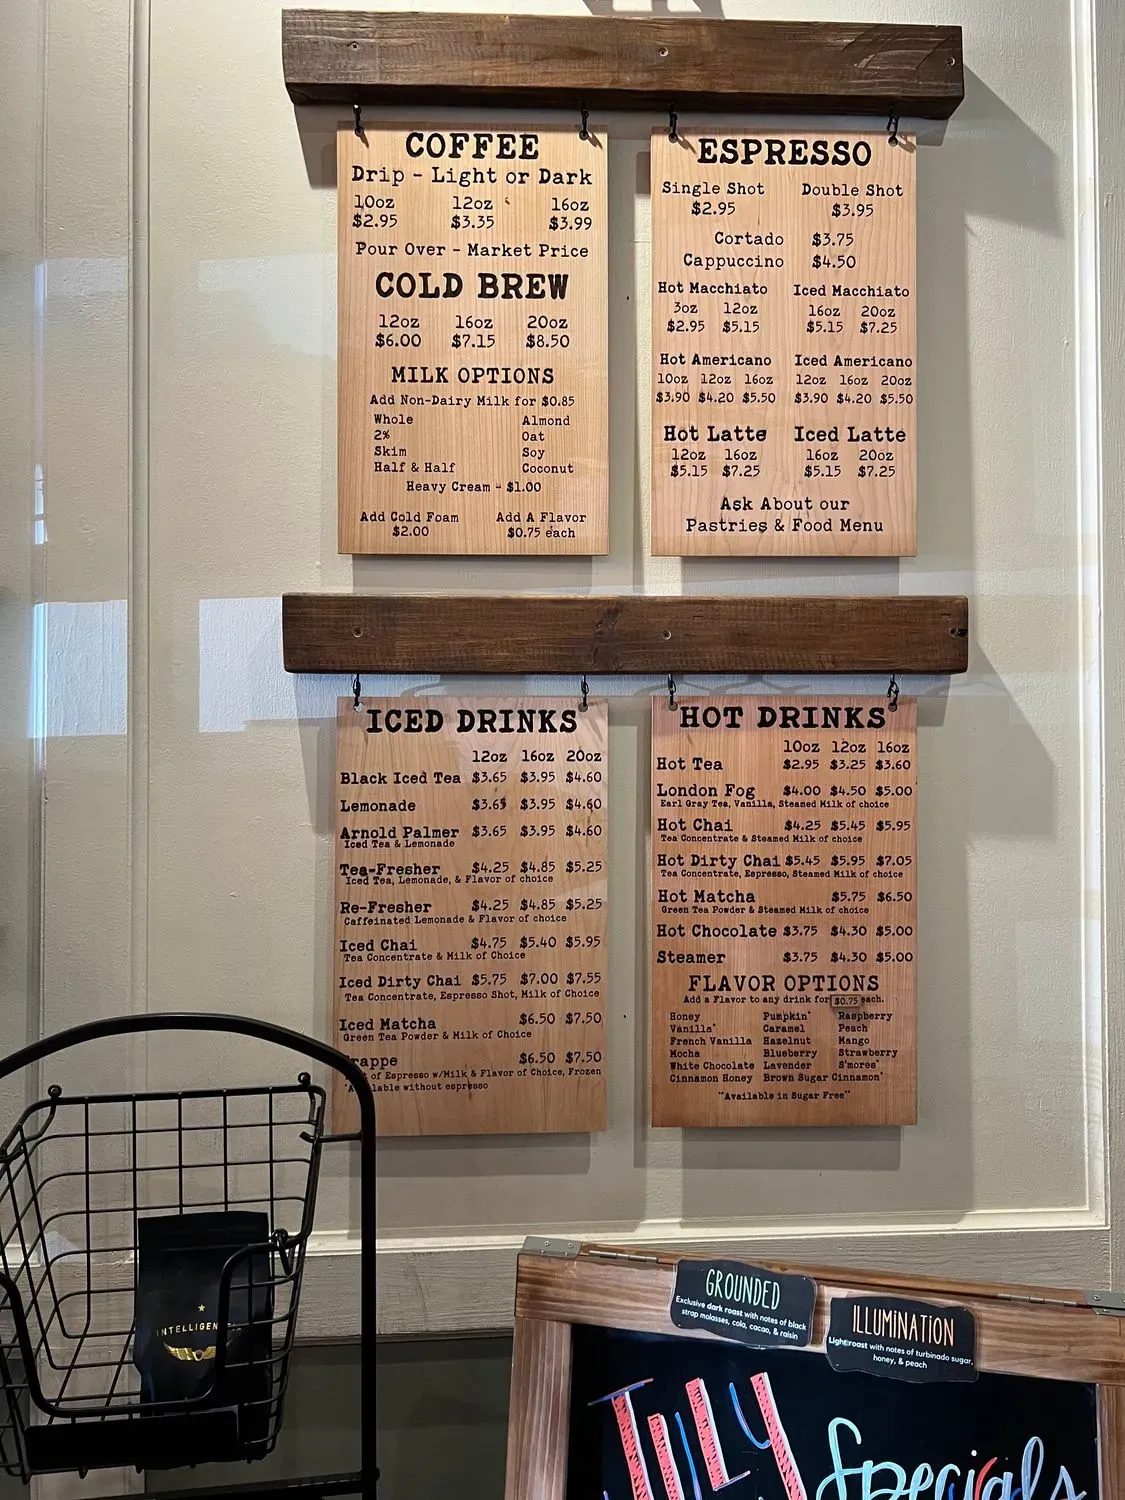 COFFEE
Drip - Light or Dark
10oz 12oz 16oz
$2.95 $3.35 $3.99
Pour Over - Market Price
COLD BREW
12oz 16oz 20oz
$6.00 $7.15 $8.50
MILK OPTIONS
Add Non-Dairy Milk for $0.85
Whole Almond
2% Oat
Skim Soy
Half & Half Coconut
Heavy Cream - $1.00
Add Cold Foam Add A Flavor
$2.00 $0.75 each
ESPRESSO
Single Shot Double Shot
$2.95 $3.95
Cortado $3.75
Cappuccino $4.50
Hot Macchiato Iced Macchiato
3oz 12oz 16oz 20oz
$2.95 $5.15 $5.15 $7.25
Hot Americano Iced Americano
10oz 12oz 16oz 12oz 16oz 20oz
$3.90 $4.20 $5.50 $3.90 $4.20 $5.50
Hot Latte Iced Latte
12oz 16oz 16oz 20oz
$5.15 $7.25 $5.15 $7.25
Ask About our
Pastries & Food Menu
ICED DRINKS
12oz 16oz 20oz
Black Iced Tea $3.65 $3.95 $4.60
Lemonade $3.65 $3.95 $4.60
Arnold Palmer $3.65 $3.95 $4.60
Iced Tea & Lemonade
Tea-Fresher $4.25 $4.85 $5.25
Iced Tea, Lemonade, & Flavor of choice
Re-Fresher $4.25 $4.85 $5.25
Caffeinated Lemonade & Flavor of choice
Iced Chai $4.75 $5.40 $5.95
Tea Concentrate & Milk of Choice
Iced Dirty Chai $5.75 $7.00 $7.55
Tea Concentrate, Espresso Shot, Milk of Choice
Iced Matcha $6.50 $7.50
Green Tea Powder & Milk of Choice
rappe $6.50 $7.50
of Espresso w/Milk & Flavor of Choice, Frozen
without espresso
HOT DRINKS
10oz 12oz 16oz
Hot Tea $2.95 $3.25 $3.60
London Fog $4.00 $4.50 $5.00
Earl Gray Tea, Vanilla, Steamed Milk of choice
Hot Chai $4.25 $5.45 $5.95
Tea Concentrate & Steamed Milk of choice
Hot Dirty Chai $5.45 $5.95 $7.05
Tea Concentrate, Espresso, Steamed Milk of choice
Hot Matcha $5.75 $6.50
Green Tea Powder & Steamed Milk of choice
Hot Chocolate $3.75 $4.30 $5.00
Steamer $3.75 $4.30 $5.00
FLAVOR OPTIONS
Add a Flavor to any drink for $0.75 each.
Honey Pumpkin* Raspberry
Vanilla* Caramel Peach
French Vanilla Hazelnut Mango
Mocha Blueberry Strawberry
White Chocolate Lavender S'mores*
Cinnamon Honey Brown Sugar Cinnamon*
**Available in Sugar Free**
INTELLIGEN
GROUNDED
Exclusive dark roast with notes of black
strap molasses, cola, cacao, & raisin
ILLUMINATION
Light roast with notes of turbinado sugar,
honey, & peach
JULY Specials